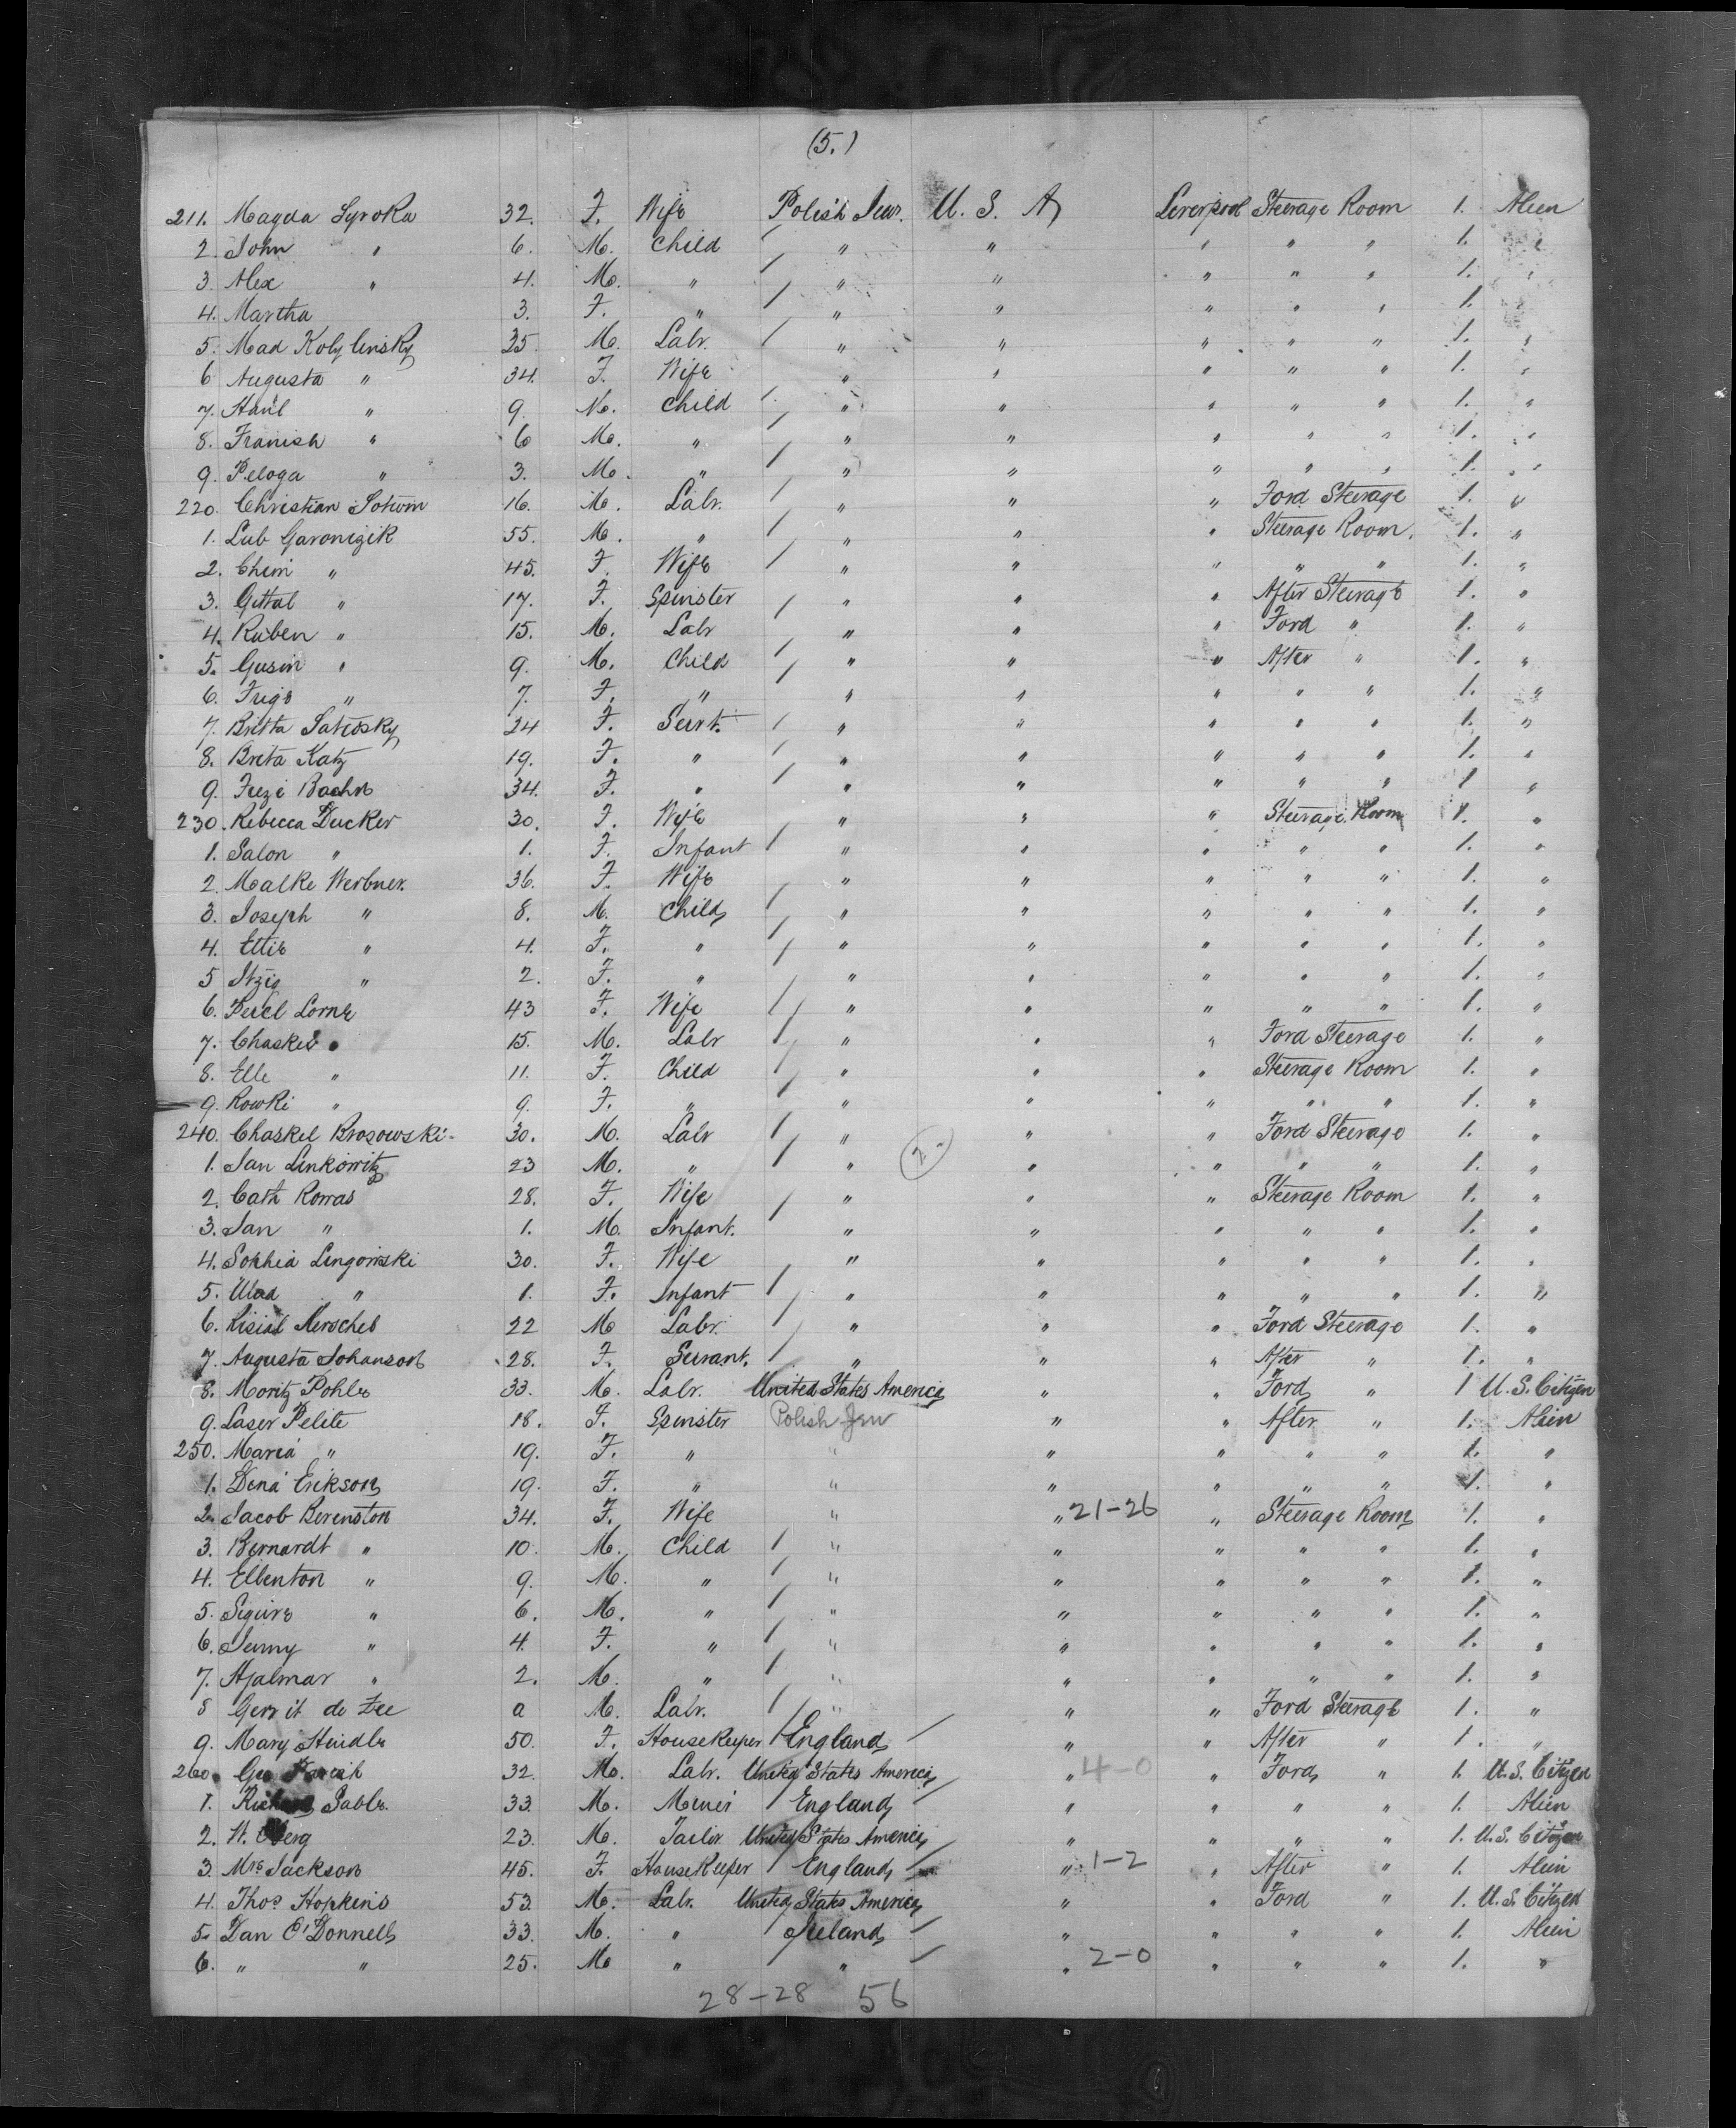 (5.)
211. Magda Syroka 32. F. Wife Polish Jew. U. S. A Liverpool Steerage Room 1. Alien
2. John " 6. M. Child / " " " " " 1. "
3. Alex " 4. M. " / " " " " " 1. "
4. Martha 3. F. " / " " " " " 1. "
5. Mad Kolylinsky 35 M. Labr. / " " " " " 1. "
6 Augusta " 34. F. Wife " " " " " 1. "
7. Haul " 9. M. Child / " " " " " 1. "
8. Franish " 6 M. " / " " " " " 1. "
9. Peloga " 3. M. " / " " " " " 1. "
220. Christian Soturn 16. M. Labr. / " " " Ford Steerage 1. "
1. Lub Garonigik 55. M. " / " " " Steerage Room. 1. "
2. Chim " 45. F. Wife / " " " " " 1. "
3. Gittal " 17. F. Spinster / " " " After Steerage 1. "
4. Ruben " 15. M. Labr " " " Ford " 1. "
5. Gusin " 9. M. Child / " " " After " 1. "
6. Frige " 7. F. " / " " " " " 1. "
7. Britta Satiosky 24 F. Servt. / " " " " " 1. "
8. Breta Katz 19. F. " / " " " " " 1. "
9. Frezi Bachn 34. F. " / " " " " " 1 "
230. Rebecca Ducker 30. F. Wife " " " Steerage Room 1. "
1. Salon " 1. F. Infant / " " " " " 1. "
2. Malke Werbner 36. F. Wife " " " " " 1. "
3. Joseph " 8. M. Child / " " " " " 1. "
4. Ettie " 4. F. " / " " " " " 1. "
5 Itzig " 2. F. " / " " " " " 1. "
6. Perel Lorne 43 F. Wife / " " " " " 1. "
7. Chaskel " 15. M. Labr / " " " Ford Steerage 1. "
8. Elle " 11. F. Child / " " " Steerage Room 1. "
9. Rowki " 9. F. " / " " " " " 1. "
240. Chaskel Brosowski 30. M. Labr / " " " Ford Steerage 1. "
1. Jan Linkowitz 23 M. " / " (2.) " " " " 1. "
2. Cath Rowas 28. F. Wife / " " " Steerage Room 1. "
3. Jan " 1. M. Infant. " " " " " 1. "
4. Sophia Lingowski 30. F. Wife " " " " " 1. "
5. Wlad " 1. F. Infant / " " " " " 1. "
6. Risial Herschel 22 M Labr. / " " " Ford Steerage 1. "
7. Augusta Johanson 28. F. Servant. / " " " After " 1. "
8. Moritz Pohle 33. M. Labr. United States America " " Ford " 1 U.S. Citizen
9. Laser Pelite 18. F. Spinster Polish Jew " " After " 1. Alien
250. Maria " 19. F. " " " " " " 1. "
1. Dena Erikson 19. F. " " " " " " 1. "
2. Jacob Berenston 34. F. Wife " " 21-26 " Steerage Room 1. "
3. Bernardt " 10. M. Child / " " " " " 1. "
4. Ellenton " 9. M. " / " " " " " 1. "
5. Sigurs " 6. M. " / " " " " " 1. "
6. Jenny " 4. F. " / " " " " " 1. "
7. Hjalmar " 2. M. " / " " " " " 1. "
8 Gerrit de Zee a M. Labr. / " " " Ford Steerage 1. "
9. Mary Hindle 50. F. Housekeeper / England " " After " 1. "
260. Geo 32. M. Labr. United States America " 4-0 " Ford " 1. U.S. Citizen
1. Sable 33. M. Miner / England " " " " 1. Alien
2. W. 23. M. Tailor United States America " " " " 1. U.S. Citizen
3. Mrs Jackson 45. F. Housekeeper / England " 1-2 " After " 1. Alien
4. Thos Hopkins 53. M. Labr. United States America " " Ford " 1. U.S. Citizen
5. Dan O'Donnell 33. M. " Ireland / " " " " 1. Alien
6. " " 25. M " " / " 2-0 " " " 1. "
28-28 56